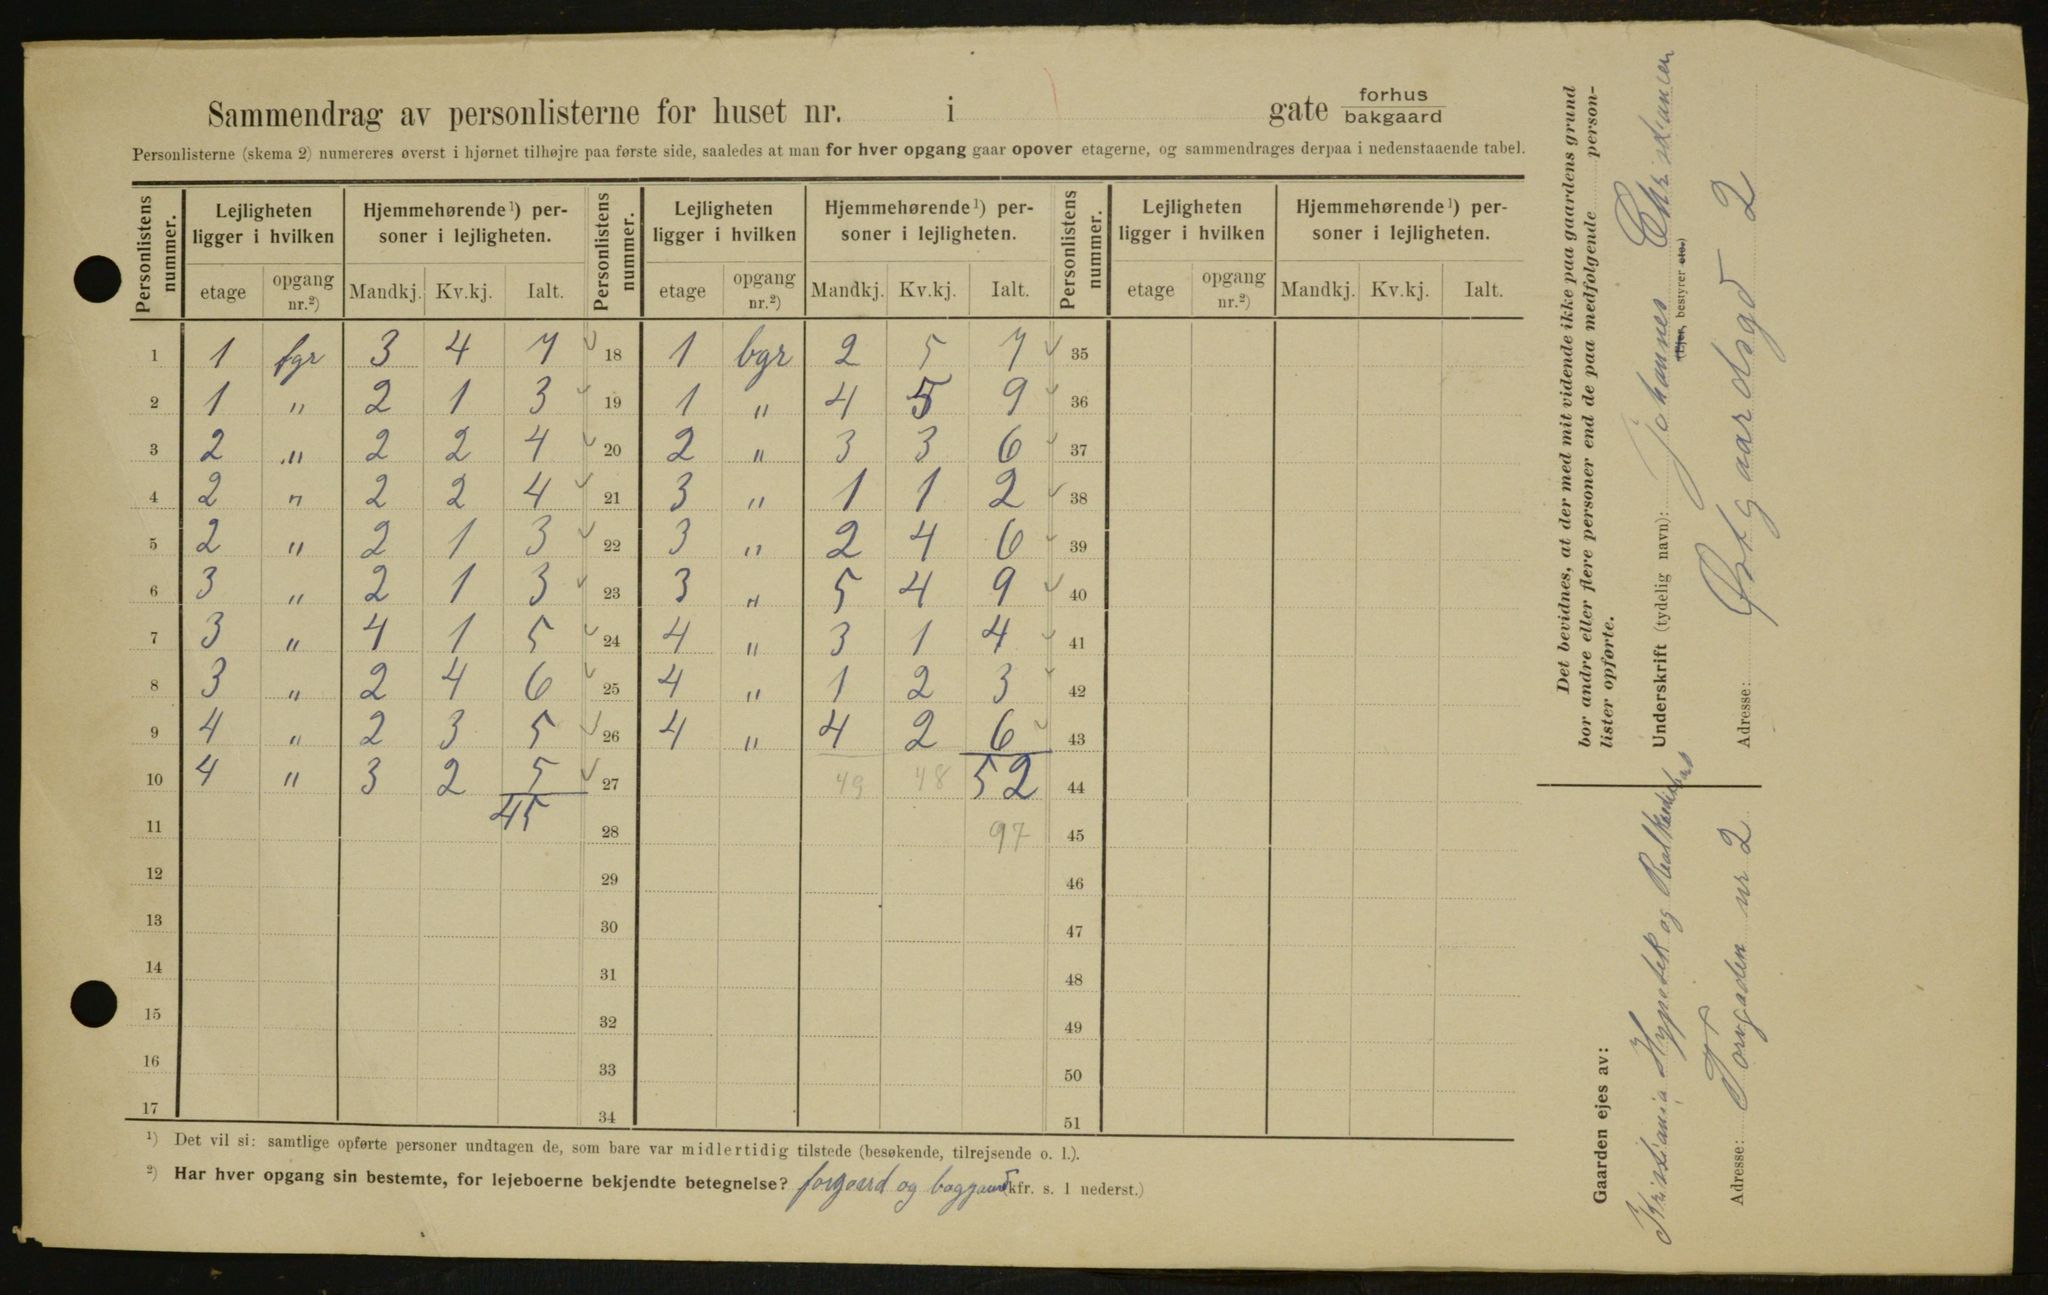 Sammendrag av personlisterne for huset nr. i gate forhus bakgaard
Personlisterne (skema 2) numereres øverst i hjørnet tilhøjre paa første side, saaledes at man for hver opgang gaar opover etagerne, og sammendrages derpaa i nedenstaaende tabel.
Personlistens nummer. Lejligheten ligger i hvilken Hjemmehørende ¹) personer i lejligheten. Personlistens nummer. Lejligheten ligger i hvilken Hjemmehørende ¹) personer i lejligheten. Personlistens nummer. Lejligheten ligger i hvilken Hjemmehørende ¹) personer i lejligheten.
etage opgang nr.²) Mandkj. Kv.kj. Ialt. etage opgang nr.²) Mandkj. Kv.kj. Ialt. etage opgang nr.²) Mandkj. Kv.kj. Ialt.
1 1 fgr 3 4 7 ✓ 18 1 bgr 2 5 7 ✓ 35
2 1 " 2 1 3 ✓ 19 1 " 4 5 9 ✓ 36
3 2 " 2 2 4 ✓ 20 2 " 3 3 6 ✓ 37
4 2 " 2 2 4 ✓ 21 3 " 1 1 2 ✓ 38
5 2 " 2 1 3 ✓ 22 3 " 2 4 6 ✓ 39
6 3 " 2 1 3 ✓ 23 3 " 5 4 9 ✓ 40
7 3 " 4 1 5 ✓ 24 4 " 3 1 4 ✓ 41
8 3 " 2 4 6 ✓ 25 4 " 1 2 3 ✓ 42
9 4 " 2 3 5 ✓ 26 4 " 4 2 6 ✓ 43
10 4 " 3 2 5 ✓ 27 49 48 52 44
11 45 28 97 45
12 29 46
13 30 47
14 31 48
15 32 49
16 33 50
17 34 51
¹) Det vil si: samtlige opførte personer undtagen de, som bare var midlertidig tilstede (besøkende, tilrejsende o. l.).
²) Har hver opgang sin bestemte, for lejeboerne bekjendte betegnelse? forgaard og baggaard (kfr. s. 1 nederst.)
Det bevidnes, at der med mit vidende ikke paa gaardens grund
bor andre eller flere personer end de paa medfølgende personlister opførte.
Underskrift (tydelig navn): Johannes Christiansen
(Ejer, bestyrer etc.)
Adresse: Østgaardsgd 2
Gaarden ejes av:
Kristiania Hypotek og Realkreditbank
Adresse: Torvgaden nr 2